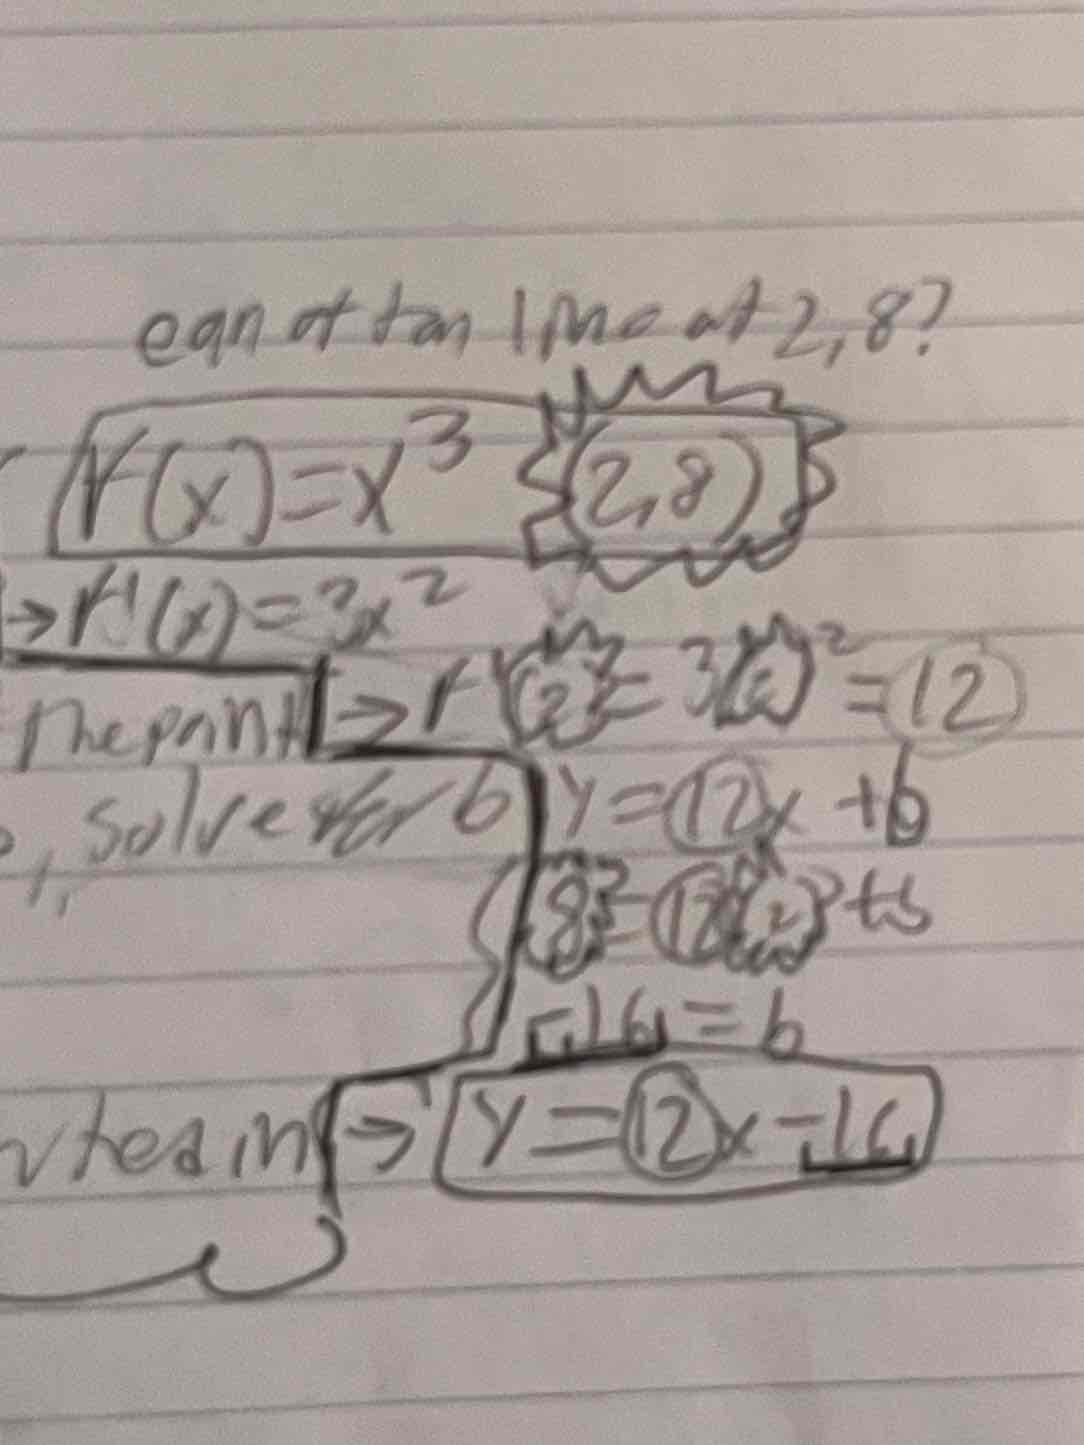 eqn of tan line at 2,8?
f(x)=x³ (2,8)
→f'(x)=3x²
the point →f'(2)=3(2)²=12
, solve for b y=12x+b
8=12(2)+b
-16=b
in → y=12x-16